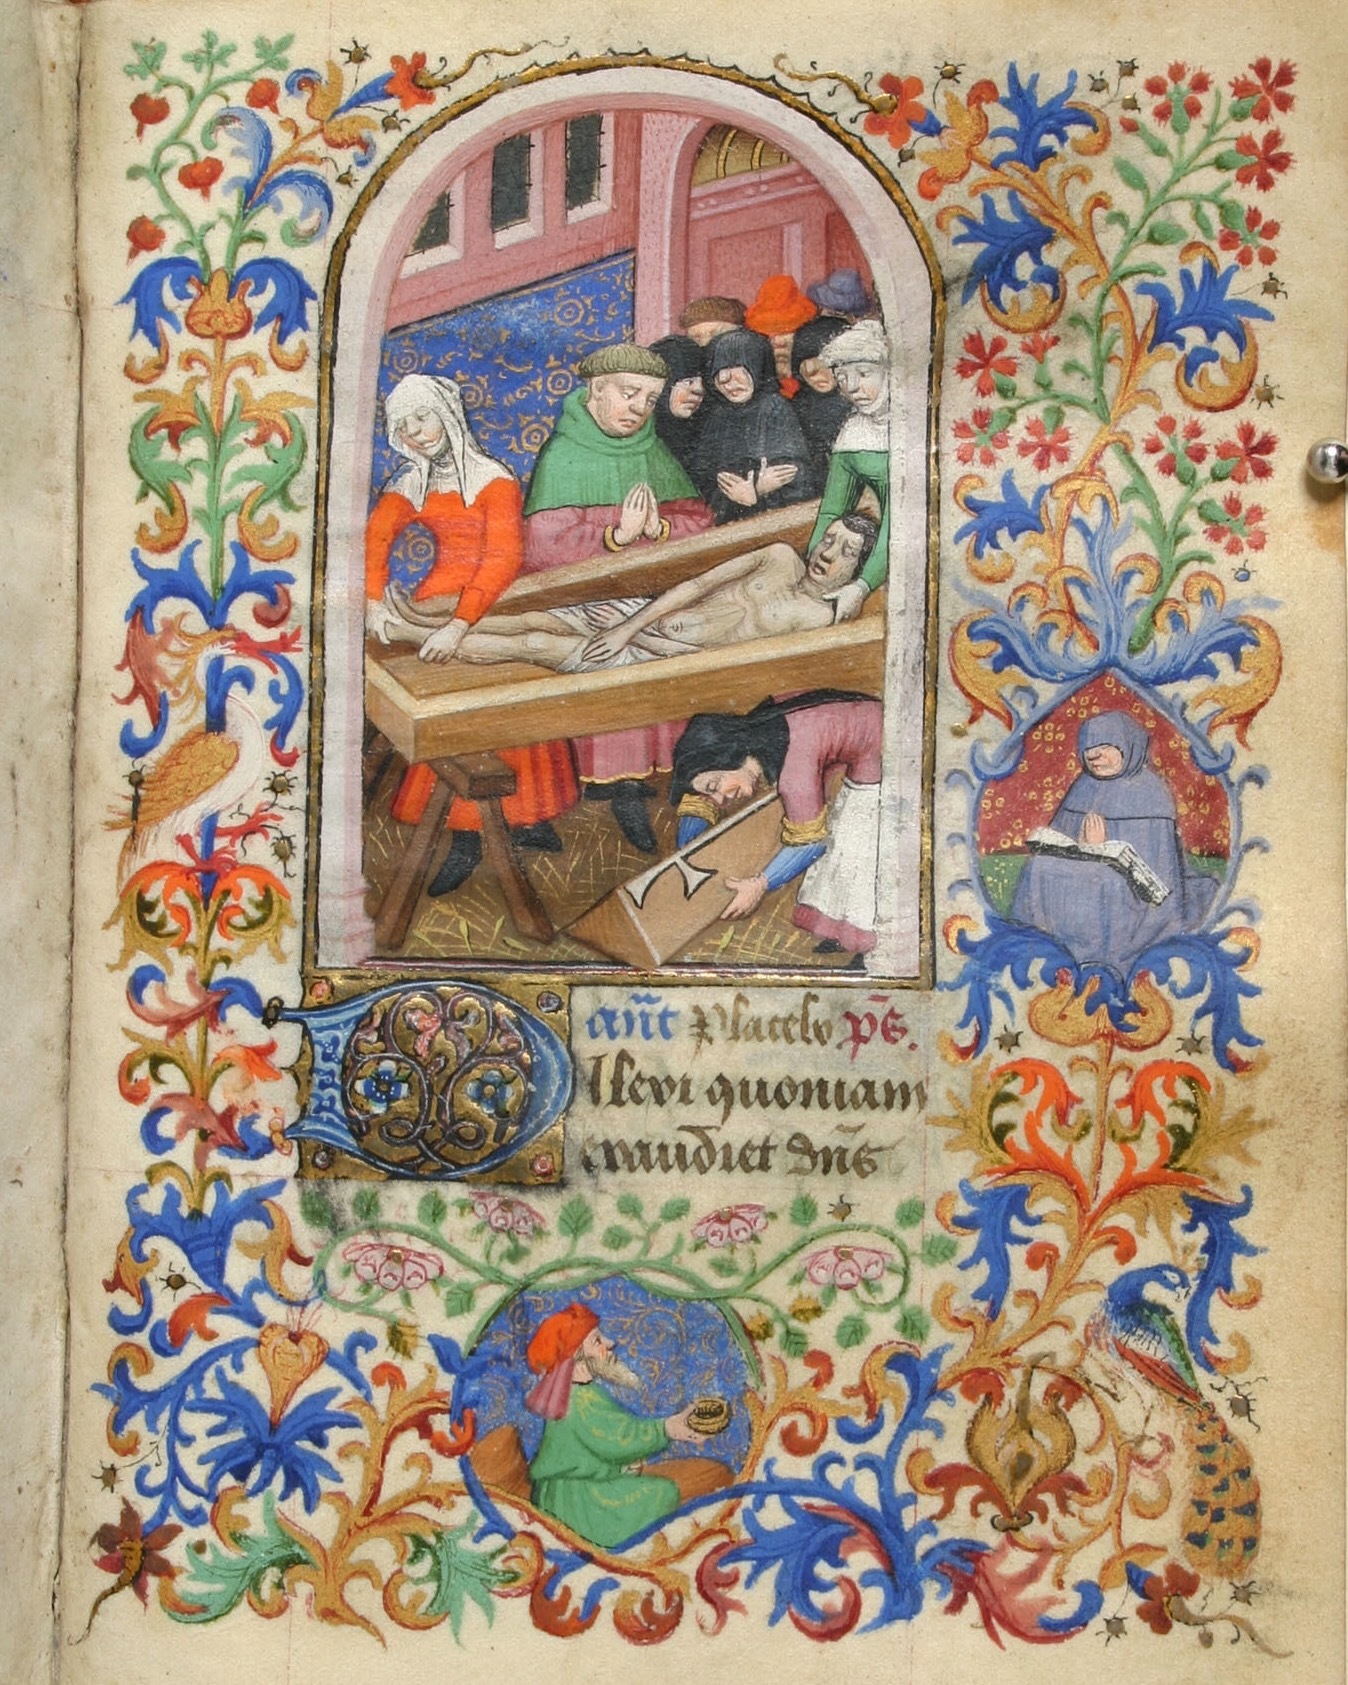 D aūt Placebo p̄s.
Ilexi quoniam
exaudiet dn̄s